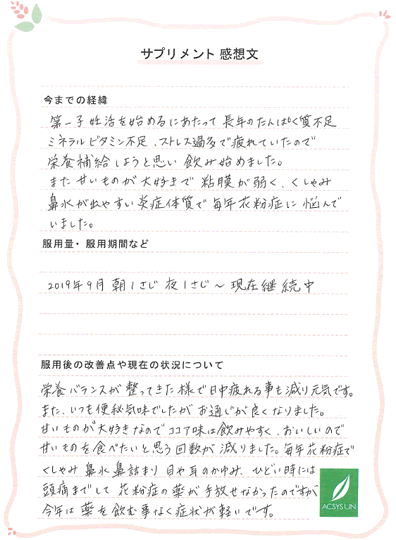 サプリメント 感想文
今までの経緯
第一子妊活を始めるにあたって 長年のたんぱく質不足
ミネラルビタミン不足、ストレス過多で疲れていたので
栄養補給しようと思い 飲み始めました。
また 甘いものが大好きで 粘膜が弱く、くしゃみ
鼻水が出やすい炎症体質で毎年花粉症に悩んで
いました。
服用量・服用期間など
2019年9月 朝1さじ 夜1さじ 〜 現在継続中
服用後の改善点や現在の状況について
栄養バランスが整ってきた様で日中疲れる事も減り元気です。
また、いつも便秘気味でしたがお通じが良くなりました。
甘いものが大好きなのでココア味は飲みやすく、おいしいので
甘いものを食べたいと思う回数が減りました。毎年花粉症で
くしゃみ 鼻水 鼻詰まり 目や耳のかゆみ、ひどい時には
頭痛までして 花粉症の薬が手放せなかったのですが
今年は 薬を飲む事なく症状が軽いです。
ACSYS LIN